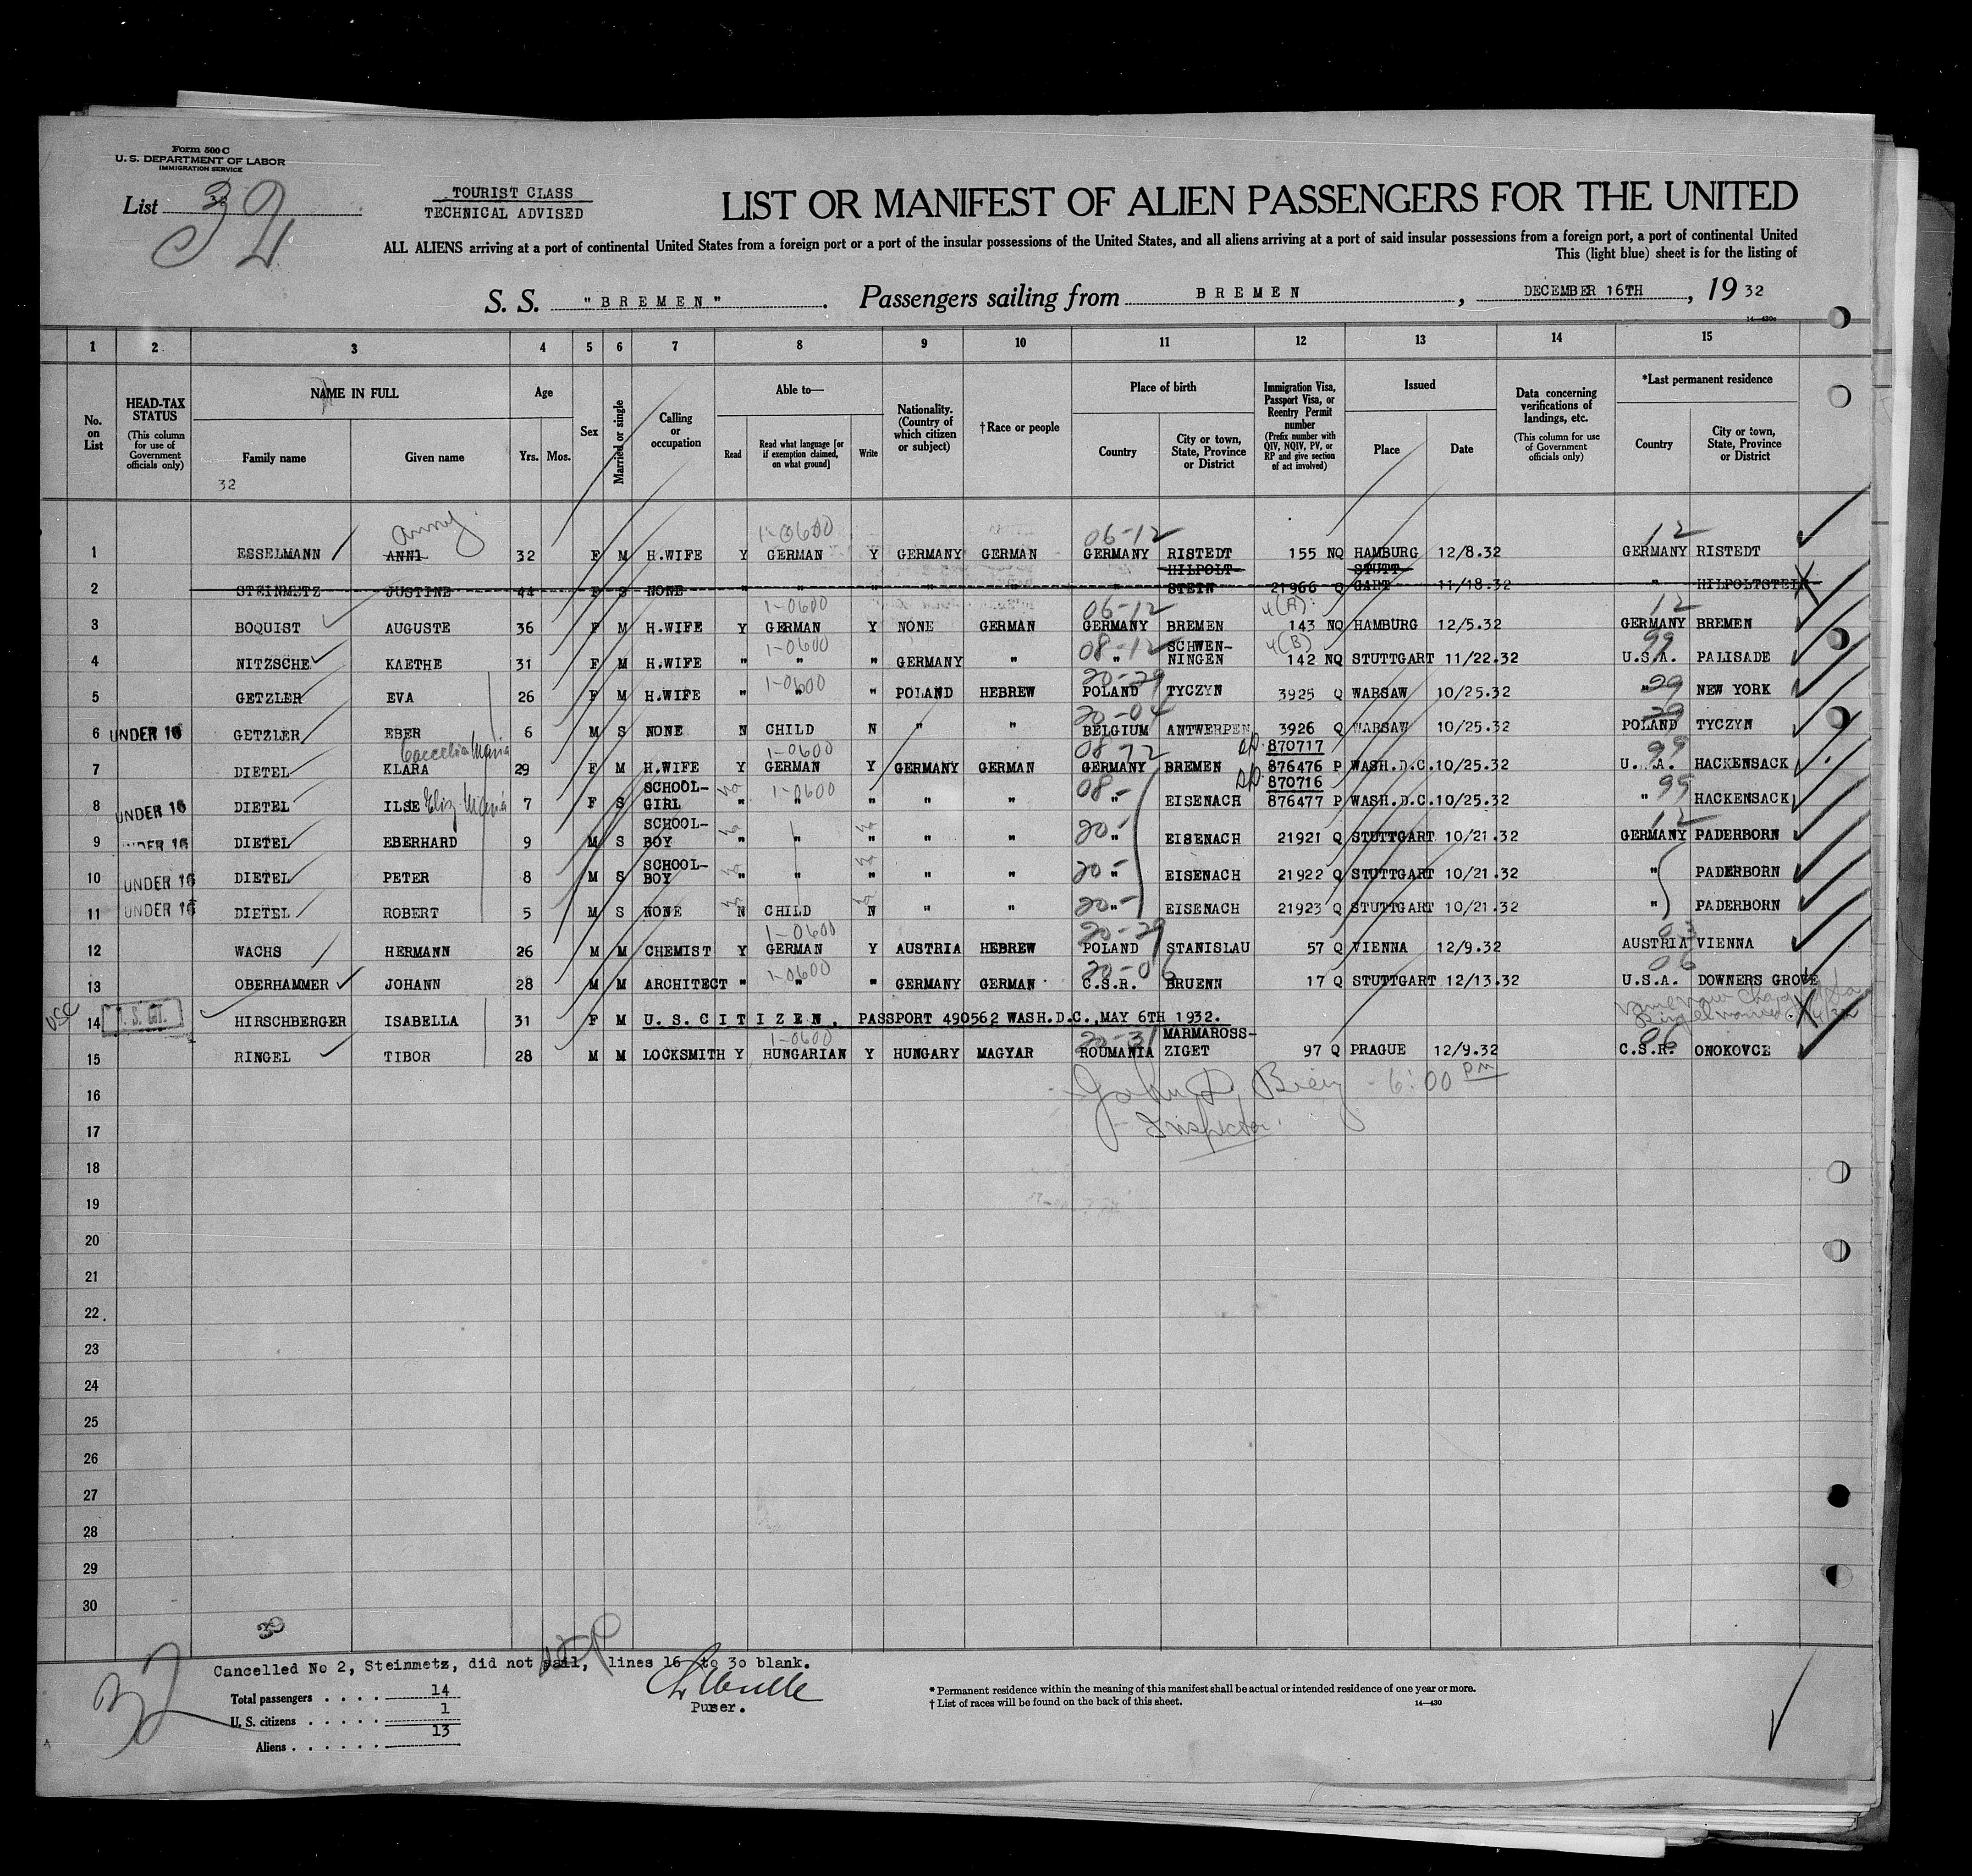 Form 500 C
U. S. DEPARTMENT OF LABOR
IMMIGRATION SERVICE
List 32
32
TOURIST CLASS
TECHNICAL ADVISED
LIST OR MANIFEST OF ALIEN PASSENGERS FOR THE UNITED
ALL ALIENS arriving at a port of continental United States from a foreign port or a port of the insular possessions of the United States, and all aliens arriving at a port of said insular possessions from a foreign port, a port of continental United
This (light blue) sheet is for the listing of
S. S. "BREMEN". Passengers sailing from BREMEN, DECEMBER 16TH, 19 32
14—430c
1 2 3 4 5 6 7 8 9 10 11 12 13 14 15
No. on List
HEAD-TAX STATUS
(This column for use of Government officials only)
NAME IN FULL
Family name
Given name
32
Age
Yrs. Mos.
Sex
Married or single
Calling or occupation
Able to—
Read
Read what language [or if exemption claimed, on what ground]
Write
Nationality. (Country of which citizen or subject)
†Race or people
Place of birth
Country
City or town, State, Province or District
Immigration Visa, Passport Visa, or Reentry Permit number
(Prefix number with QIV, NQIV, PV, or RP and give section of act involved)
Issued
Place
Date
Data concerning verifications of landings, etc.
(This column for use of Government officials only)
*Last permanent residence
Country
City or town, State, Province or District
Anny 1-0600 06-12 12
1 ESSELMANN ANNI 32 F M H.WIFE Y GERMAN Y GERMANY GERMAN GERMANY RISTEDT 155 NQ HAMBURG 12/8.32 GERMANY RISTEDT
2 STEINMETZ JUSTINE 44 F S NONE " " " " " " HILPOLT-STEIN 21966 Q STUTT-GART 11/18.32 " HILPOLTSTEIN
1-0600 06-12 4(A) 12
3 BOQUIST AUGUSTE 36 F M H.WIFE Y GERMAN Y NONE GERMAN GERMANY BREMEN 143 NQ HAMBURG 12/5.32 GERMANY BREMEN
1-0600 08-12 4(B) 99
4 NITZSCHE KAETHE 31 F M H.WIFE " " " GERMANY " " SCHWEN-NINGEN 142 NQ STUTTGART 11/22.32 U.S.A. PALISADE
1-0600 20-29 29
5 GETZLER EVA 26 F M H.WIFE " " " POLAND HEBREW POLAND TYCZYN 3925 Q WARSAW 10/25.32 " NEW YORK
20-04 29
6 UNDER 16 GETZLER EBER 6 M S NONE N CHILD N " " BELGIUM ANTWERPEN 3926 Q WARSAW 10/25.32 POLAND TYCZYN
Caecelia Maria 1-0600 870717 99
7 DIETEL KLARA 29 F M H.WIFE Y GERMAN Y GERMANY GERMAN GERMANY BREMEN 876476 P WASH.D.C. 10/25.32 U.S.A. HACKENSACK
1-0600 08- 870716 99
8 UNDER 16 DIETEL ILSE Eliz Maria 7 F S SCHOOL-GIRL " " " " " " EISENACH 876477 P WASH.D.C. 10/25.32 " HACKENSACK
20- 12
9 UNDER 16 DIETEL EBERHARD 9 M S SCHOOL-BOY " " " " " " EISENACH 21921 Q STUTTGART 10/21.32 GERMANY PADERBORN
20-
10 UNDER 16 DIETEL PETER 8 M S SCHOOL-BOY " " " " " " EISENACH 21922 Q STUTTGART 10/21.32 " PADERBORN
20-
11 UNDER 16 DIETEL ROBERT 5 M S NONE N CHILD N " " " EISENACH 21923 Q STUTTGART 10/21.32 " PADERBORN
1-0600 20-29 03
12 WACHS HERMANN 26 M M CHEMIST Y GERMAN Y AUSTRIA HEBREW POLAND STANISLAU 57 Q VIENNA 12/9.32 AUSTRIA VIENNA
1-0600 20-06 06
13 OBERHAMMER JOHANN 28 M M ARCHITECT " " " GERMANY GERMAN C.S.R. BRUENN 17 Q STUTTGART 12/13.32 U.S.A. DOWNERS GROVE
USC
14 HIRSCHBERGER ISABELLA 31 F M U.S.CITIZEN, PASSPORT 490562 WASH.D.C.,MAY 6TH 1932.
1-0600 20-31 06
15 RINGEL TIBOR 28 M M LOCKSMITH Y HUNGARIAN Y HUNGARY MAGYAR ROUMANIA MARMAROSS-ZIGET 97 Q PRAGUE 12/9.32 C.S.R. ONOKOVCE
16
17
John D. 6:00 PM
Inspector
18
19
20
21
22
23
24
25
26
27
28
29
30
30
32
Cancelled No 2, Steinmetz, did not sail, lines 16 to 30 blank.
Total passengers . . . . 14
U. S. citizens . . . . . 1
Aliens . . . . . . 13
Purser.
* Permanent residence within the meaning of this manifest shall be actual or intended residence of one year or more.
† List of races will be found on the back of this sheet.
14—430